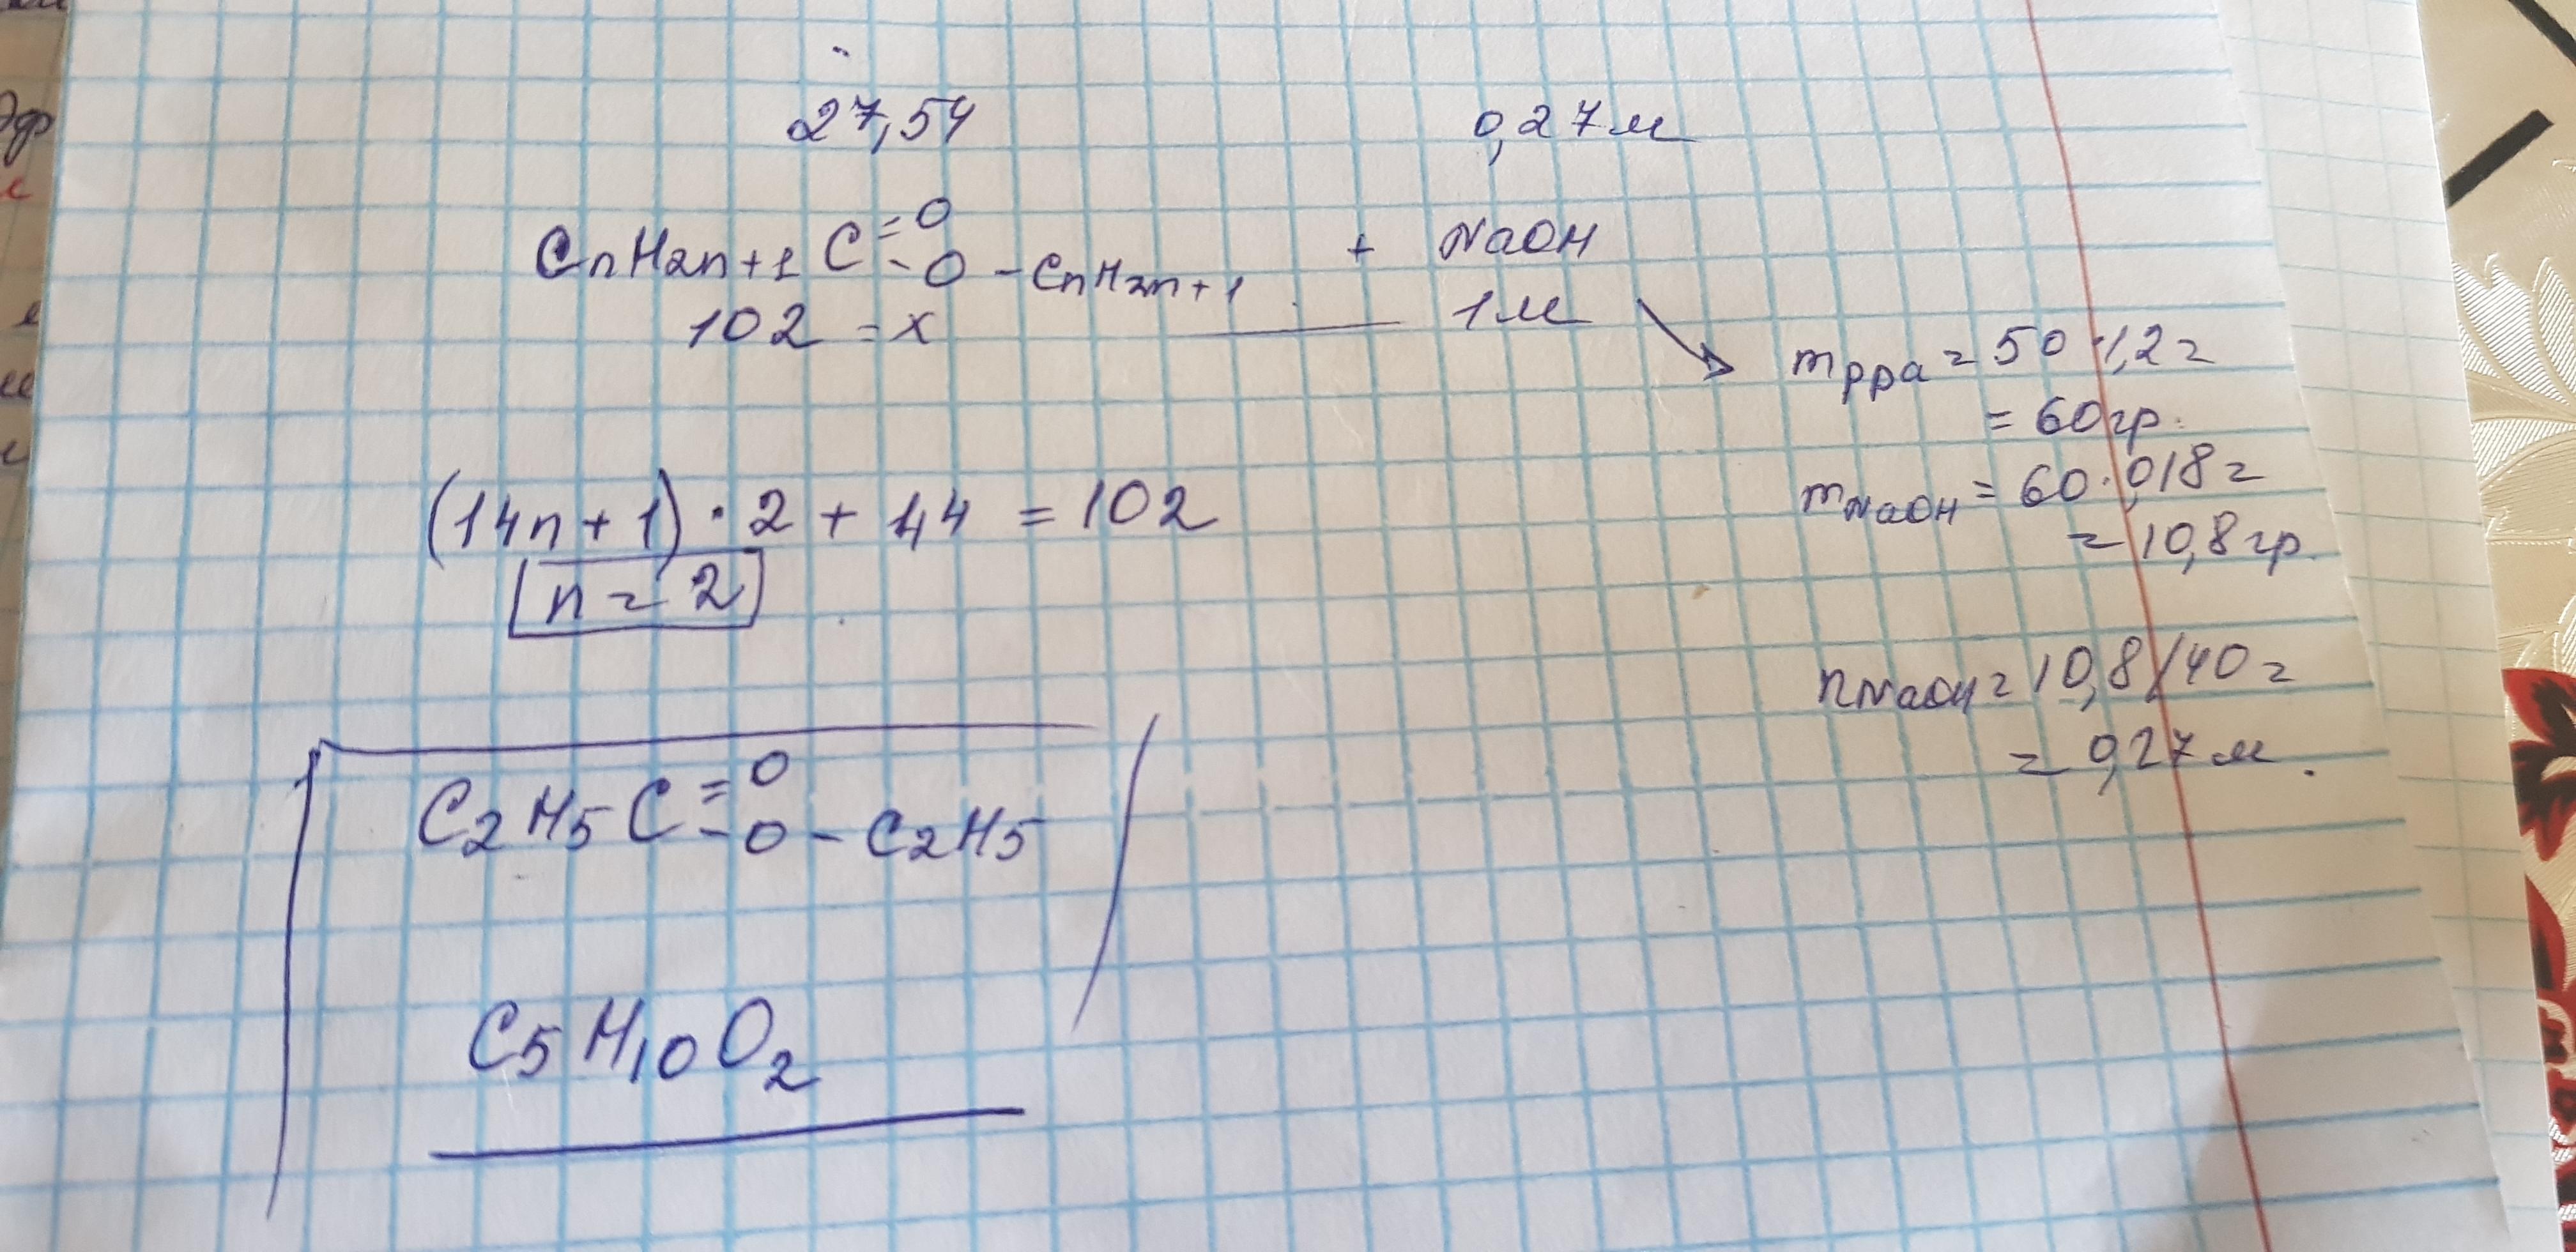 27,54 0,27м
CnH2n+1 C =O -O -CnH2n+1 + NaOH
102 = x 1м
mрра = 50·1,2 =
= 60гр.
mNaOH = 60·0,18 =
= 10,8гр.
(14n+1)·2 + 44 = 102
n = 2
nNaOH = 10,8/40 =
= 0,27м.
C2H5 C =O -O - C2H5
C5H10O2